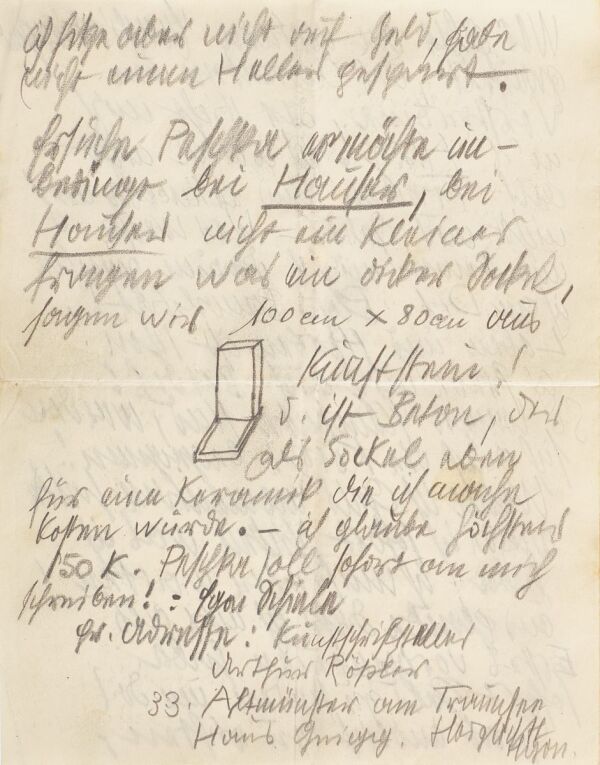 ich sitze aber nicht auf Geld, habe
nicht einen Heller gespart. –
Ersuche Peschka er möchte un-
bedingt bei Hauser, bei
Hauser nicht ein kleiner
fragen was ein dicker Sockel,
sagen wir 100 cm × 80 cm aus
Kunststein!
d. ist Beton, der
als Sockel eben
für eine Keramik die ich mache
kosten würde. – ich glaube höchstens
150 K. Peschka soll sofort an mich
schreiben! : Egon Schiele
Adresse: Kunstschriftsteller
Arthur Rößler
33. Altmünster am Traunsee
Haus Gaigg. Herzlichst
Egon.